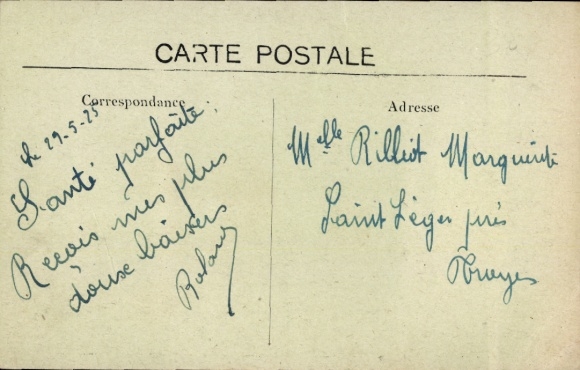 CARTE POSTALE
Correspondance
Adresse
Le 29-5-25
Santé parfaite.
Recois mes plus
doux baisers
Roland
Melle Rilliot Marguerite
Saint Léger près
Troyes